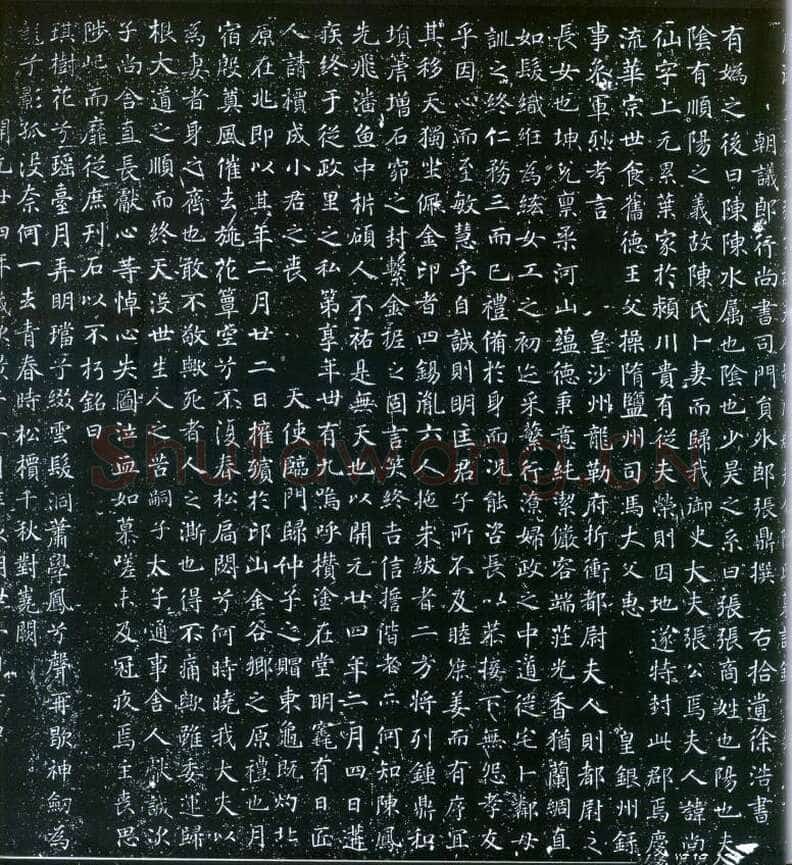 朝議郎行尚書司門員外郎張鼎撰 右拾遺徐浩書
有媯之後曰陳陳水屬也陰也少昊之系曰張張商姓也陽也夫
陰有順陽之義故陳氏卜妻而歸我御史大夫張公焉夫人諱尚
仙字上元累葉家於潁川貴有從夫榮則因地遂特封此郡焉慶
流華宗世食舊德王父操隋鹽州司馬大父惠 皇銀州録
事參軍烈考言 皇沙州龍勒府折衝都尉夫人則都尉之
長女也坤皃禀柔河山蘊德秉意純潔儼容端莊光香猶蘭綢直
如髮織紝為紘女工之初迄采蘩行潦婦政之中道從宅卜鄰母
訓之終仁務三而已禮備於身而況能咨長以恭接下無怨孝友
乎因心而至敏慧乎自誠則明匡君子所不及睦庶姜而有序宜
其移天獨坐佩金印者四錫胤六人拖朱紱者二方將列鍾鼎和
塤篪增石窌之封繫金柅之固言笑終吉信誓偕老亦何知陳鳳
先飛潘魚中析碩人不祐是無天也以開元廿四年二月四日遘
疾終于從政里之私第享年卌有九嗚呼欑塗在堂明窀有日匠
人請櫝成小君之喪 天使臨門歸仲子之賵東龜既灼北
原在兆即以其年二月廿二日權殯於邙山金谷鄉之原禮也月
宿殷奠風催去旐花簟空兮不復春松扃閟兮何時曉我大夫以
為妻者身之齊也敢不敬歟死者人之澌也得不痛歟雖委運歸
根大道之順而終天沒世生人之苦嗣子太子通事舍人獻誠次
子尚舍直長獻心等悼心失圖泣血如慕嗟未及冠疚焉主喪思
陟屺而靡從庶刊石以不朽銘曰
琪樹花兮瑶臺月弄明璫兮綴雲髮洞簫學鳳兮聲再歇神劒為
龍兮影孤沒奈何一去青春時松櫝千秋對嵩闕
開元廿四年歲次
Shufawang.CN